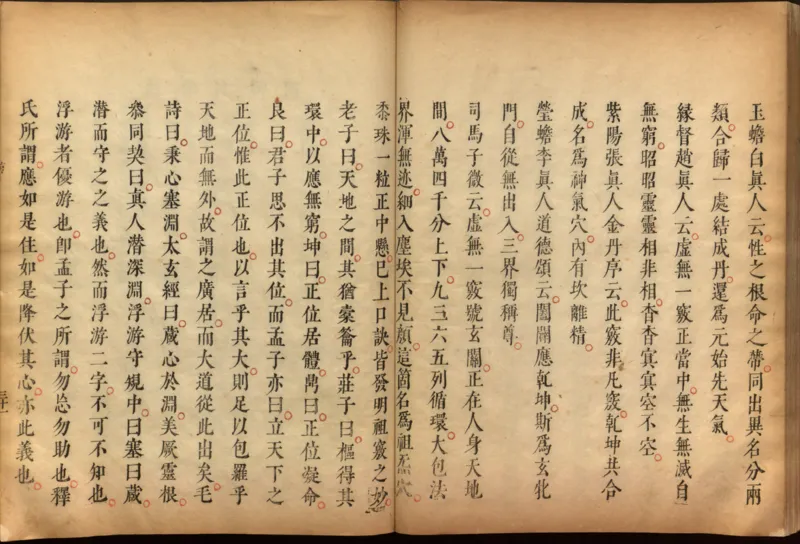 玉蟾白真人云性之根命之蒂同出異名分兩
類合歸一處結成丹還爲元始先天氣
緣督趙眞人云虛無一竅正當中無生無滅自
無窮昭昭靈靈相非相杳杳冥冥空不空
紫陽張眞人金丹序云此竅非凡竅乾坤共合
成名爲神氣穴內有坎離精
瑩蟾李眞人道德頌云闔闢應乾坤斯爲玄牝
門自從無出入三界獨稱尊
司馬子微云虛無一竅號玄關正在人身天地
間八萬四千分上下九三六五列循環大包法
界渾無迹細入塵埃不見顏這箇名爲祖炁穴
黍珠一粒正中懸已上口訣皆發明祖竅之妙
老子曰天地之間其猶橐籥乎莊子曰樞得其
環中以應無窮坤曰正位居體鼎曰正位凝命
艮曰君子思不出其位而孟子亦曰立天下之
正位惟此正位也以言乎其大則足以包羅乎
天地而無外故謂之廣居而大道從此出矣毛
詩曰秉心塞淵太玄經曰藏心於淵美厥靈根
叅同契曰眞人潛深淵浮游守規中曰塞曰藏
潛而守之之義也然而浮游二字不可不知也
浮游者優游也卽孟子之所謂勿忘勿助也釋
氏所謂應如是住如是降伏其心亦此義也